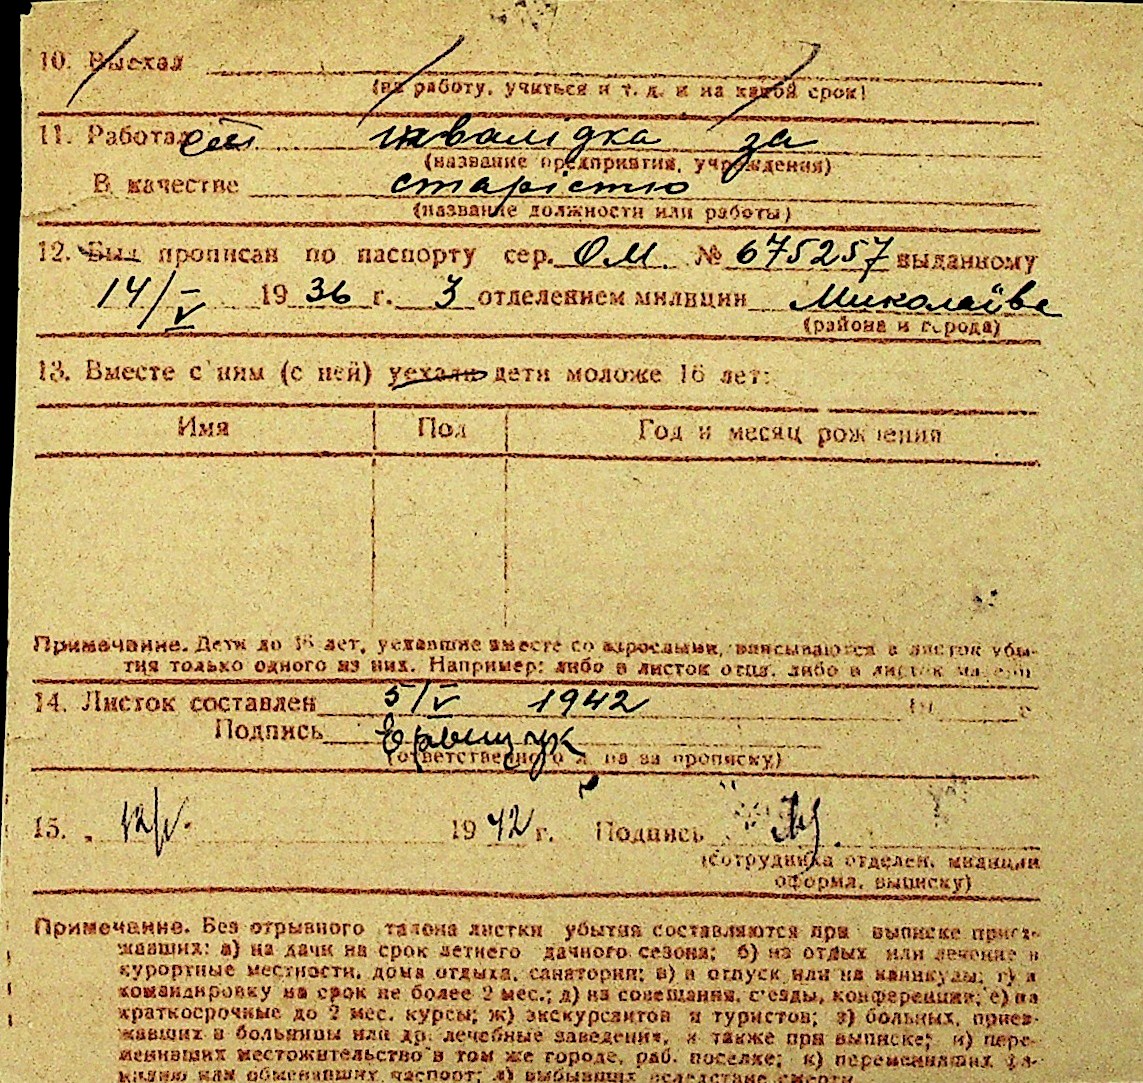 10. Выехал
(на работу, учиться и т. д. и на какой срок)
11. Работал інвалідка за
(название предприятия, учреждения)
В качестве старістю
(название должности или работы)
12. Был прописан по паспорту сер. ОМ. № 675257 выданному
14/V 1936 г. 3 отделением милиции Миколаїве
(района и города)
13. Вместе с ним (с ней) уехали дети моложе 16 лет:
Имя Пол Год и месяц рождения
Примечание. Дети до 16 лет, уехавшие вместе со взрослыми, вписываются в листок убы-
тия только одного из них. Например: либо в листок отца, либо в листок матери
14. Листок составлен 5/V 1942 19 г
Подпись
(ответственного л на за прописку)
15. 12/V. 1942 г. Подпись
(сотрудника отделен. милиции
оформл. выписку)
Примечание. Без отрывного талона листки убытия составляются при выписке приез-
жавших: а) на дачи на срок летнего дачного сезона; б) на отдых или лечение в
курортные местности, дома отдыха, санатории; в) в отпуск или на каникулы; г) в
командировку на срок не более 2 мес.; д) на совещания, с'езды, конференции; е) на
краткосрочные до 2 мес. курсы; ж) экскурсантов и туристов; з) больных, приез-
жавших в больницы или др. лечебные заведения, а также при выписке; и) пере-
менивших местожительство в том же городе, раб. поселке; к) переменивших фа-
милию или обменявших паспорт; л) выбывших вследствие смерти